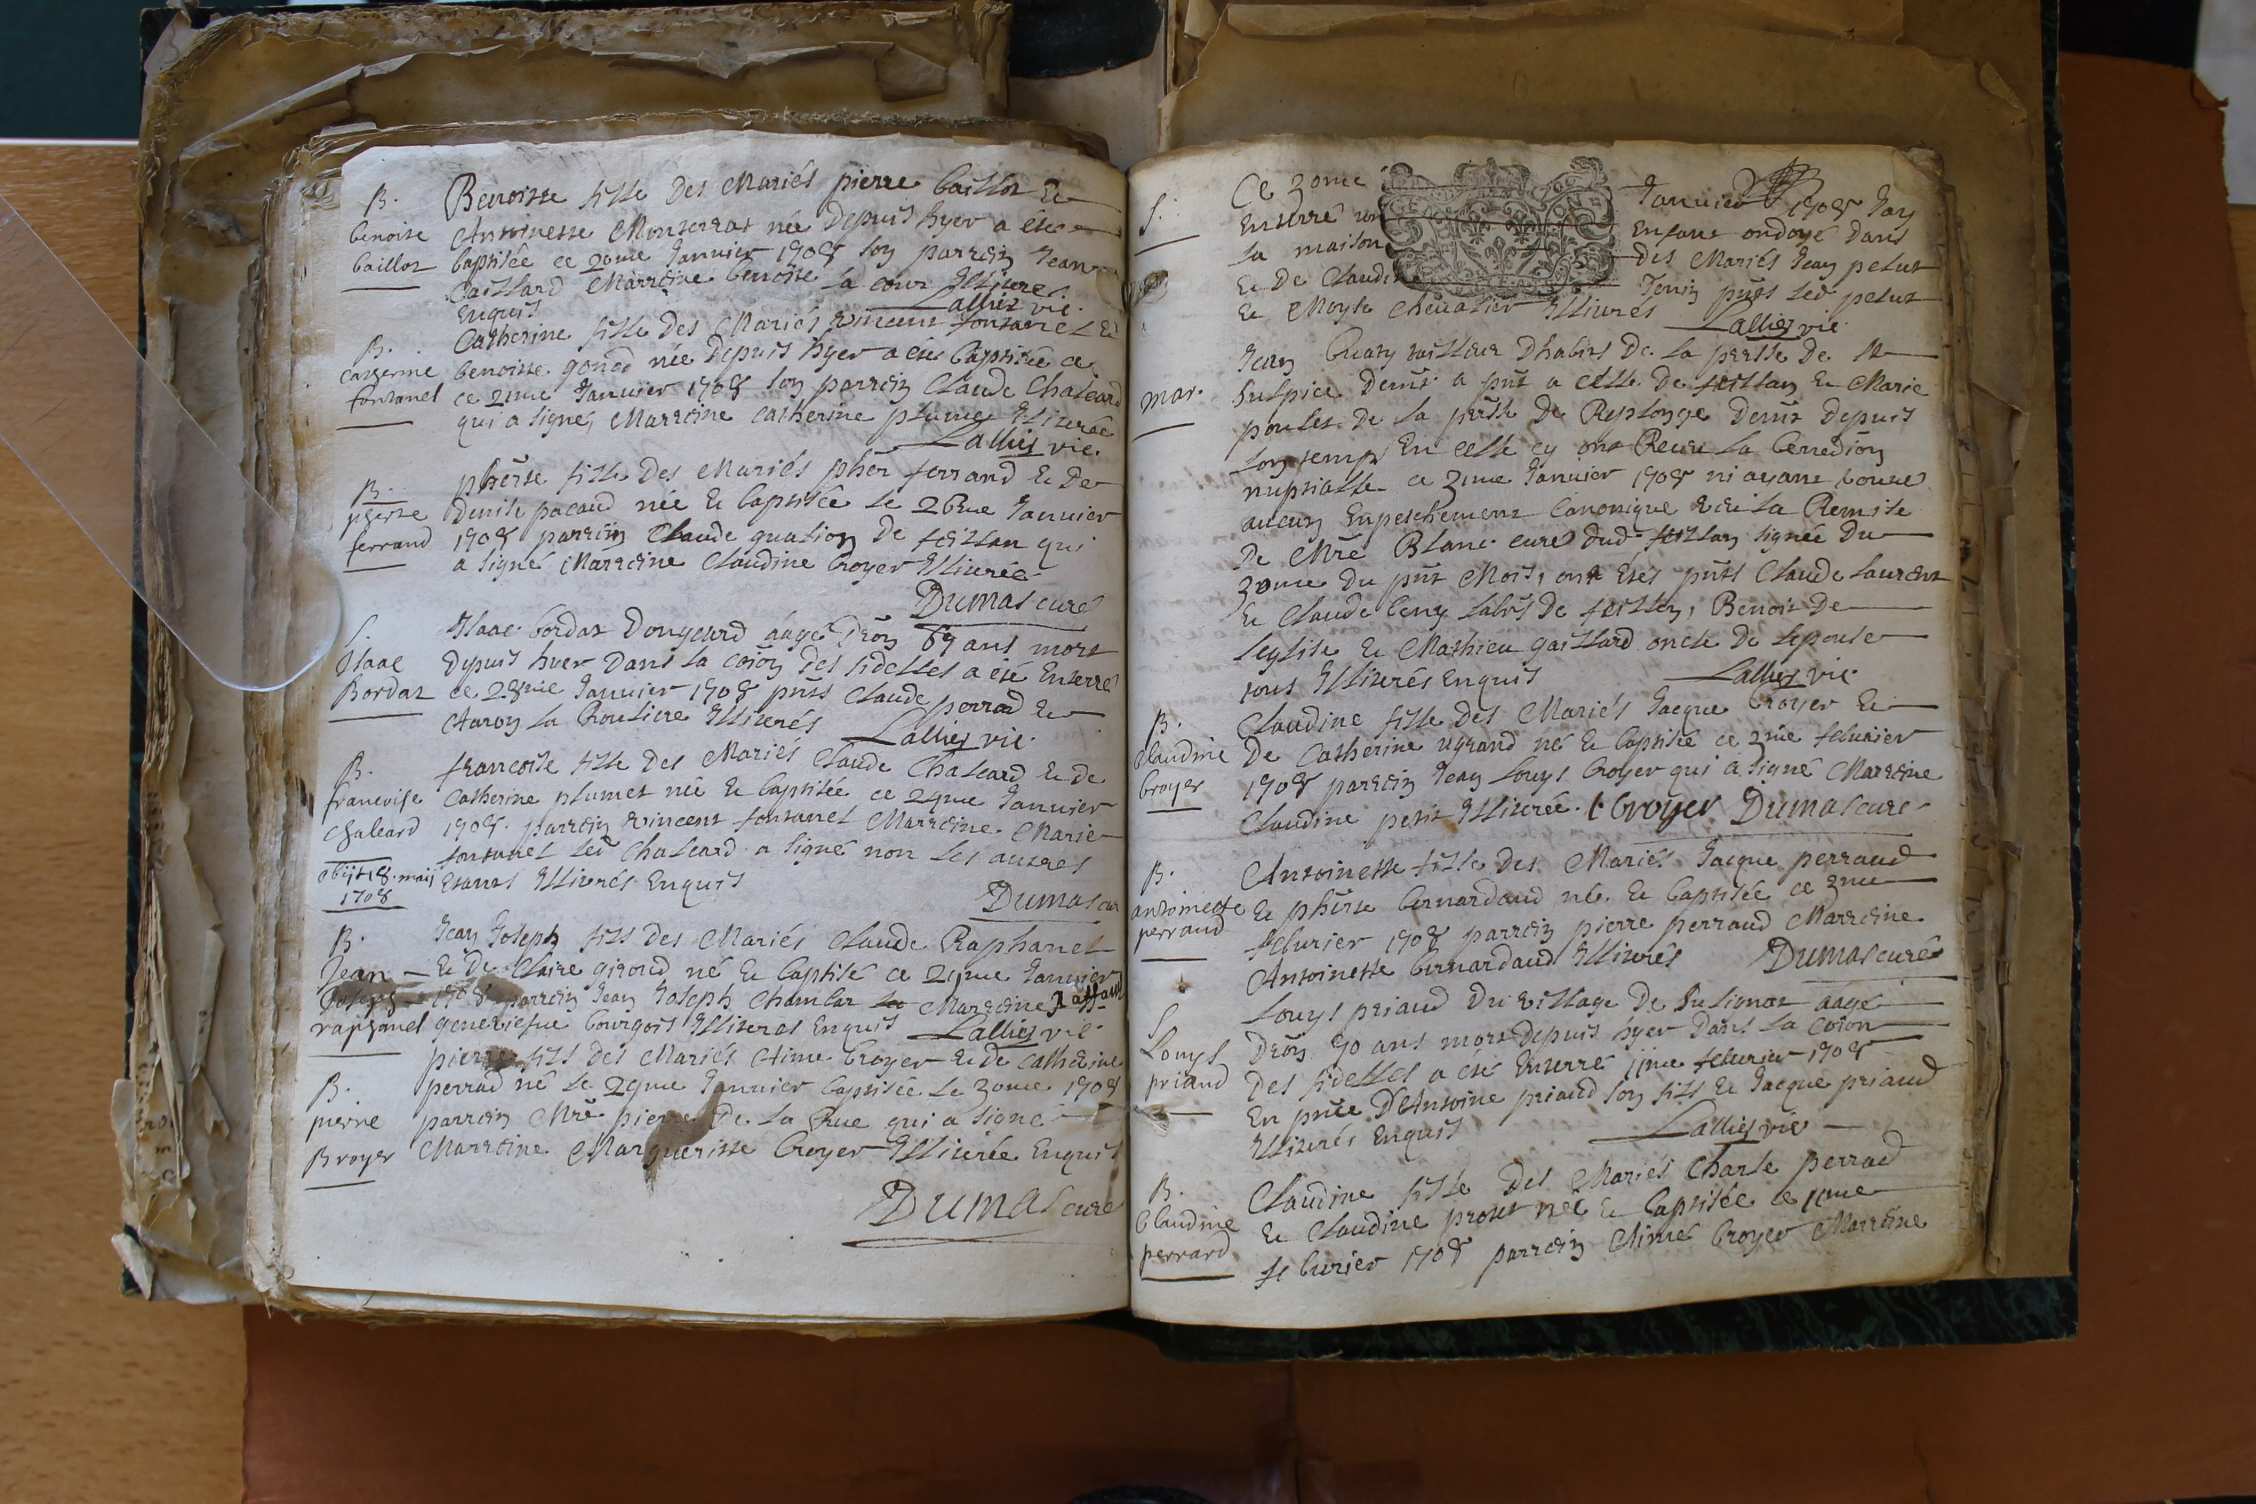 B.
benoite
baillot
Benoitte fille des Mariés pierre baillot et
Antoinette Monterrat née depuis hyer a été
baptisée ce 20me Janvier 1708 son parrein Jean
Gaillard Marreine benoite la cour Illiteres
Enquis
Lallier vic.
B.
catherine
fontanel
Catherine fille des Mariés vincent fontanel et
benoitte gonod née depuis hyer a été baptisée ce
ce 21me Janvier 1708 son parrein Claude Chaleard
qui a signé, Marreine catherine plumet Illiterée
Lallier vic.
B.
pherte
ferrand
pherte fille des Mariés pher ferrand et de
denise pacaud née et baptisée le 26me Janvier
1708 parrein Claude quation de feillan qui
a signé Marreine Claudine broyer Illiterée
Dumas curé
S.
Isaac
Bordat
Isaac bordat Dongeurd aagé Dron 69 ans mort
depuis hyer dans la coion des fidelles a été Enterré
ce 28me Janvier 1708 pnts Claude perrad et
Aaron la Rouliere Illiterés
Lallier vic.
B.
francoise
Chaleard
obijt 18. maij
1708
francoise fille des Mariés Claude Chaleard et de
Catherine plumet née et baptisée ce 29me Janvier
1708. parrein vincent fontanel Marreine Marie
fontanel led Chaleard a signé non les autres
Etants Illiterés Enquis
Dumas cur
B.
Jean
Joseph
raphanel
Jean Joseph fils des Mariés Claude Raphanel
et de Claire giroud né et baptisé ce 29me Janvier
1708 parrein Jean Joseph Chamba Marreine
geneviefue bourgois Illiteras Enquis Lallier vic.
B.
pierre
Broyer
pierre fils des Mariés Aime broyer et de catherine
perrad né le 29me Janvier baptisée le 30me 1708
parrein Mre pierre De la Rue qui a signé
Marreine Marguerite broyer Illiterée Enquis
Dumas curé
S.
Ce 30me Janvier 1708 Jay
Enterré un Enfant ondoyé dans
la maison des Mariés Jean pelut
et de Claudine Tenin pnts led pelut
et Moyse Chevalier Illiterés
Lallier vic.
mar.
Jean buary tailleur Dhabits de la presse de St
Sulpice demt a pnt a celle de feillan et Marie
poulet de la prsse de Replonge demt depuis
lon temps En celle cy ont Receu la benedion
nuptialle ce 31me Janvier 1708 ni ayant trouué
aucun Enpeschement Canonique veu la Remise
de Mre Blanc curé dud feillan signée du
30me du pnt Mois, ont étés pnts Claude Laurent
et Claude beny labrs de feillen, Benoit de
leglise et Mathieu gaillard oncle de lepouse
tous Illiterés Enquis
Lallier vic.
B.
Claudine
broyer
Claudine fille des Mariés Jacque broyer et
De Catherine ugrand né et baptisée ce 2me feburier
1708 parrein Jean Louys broyer qui a signé Marreine
Claudine petit Illiterée. l broyer Dumas curé
B.
antoinette
perraud
Antoinette fille des Mariés Jacque perraud
et pherte bernardaud née et baptisée ce 3me
feburier 1708 parrein pierre perraud Marreine
Antoinette bernardaud Illiterés
Dumas curé
S
Louys
priaud
Louys priaud du village de Sulignat aagé
Dron 70 ans mort depuis hyer dans la coion
des fidelles a été Enterré 11me feburier 1708
En pnce D'Antoine priaud son fils et Jacque priaud
Illiterés Enquis
Lallier vic
B.
Claudine
perrard
Claudine fille des Mariés Charle perrad
et Claudine prost née et baptisée ce 11me
feburier 1708 parrein Aimé broyer Marreine